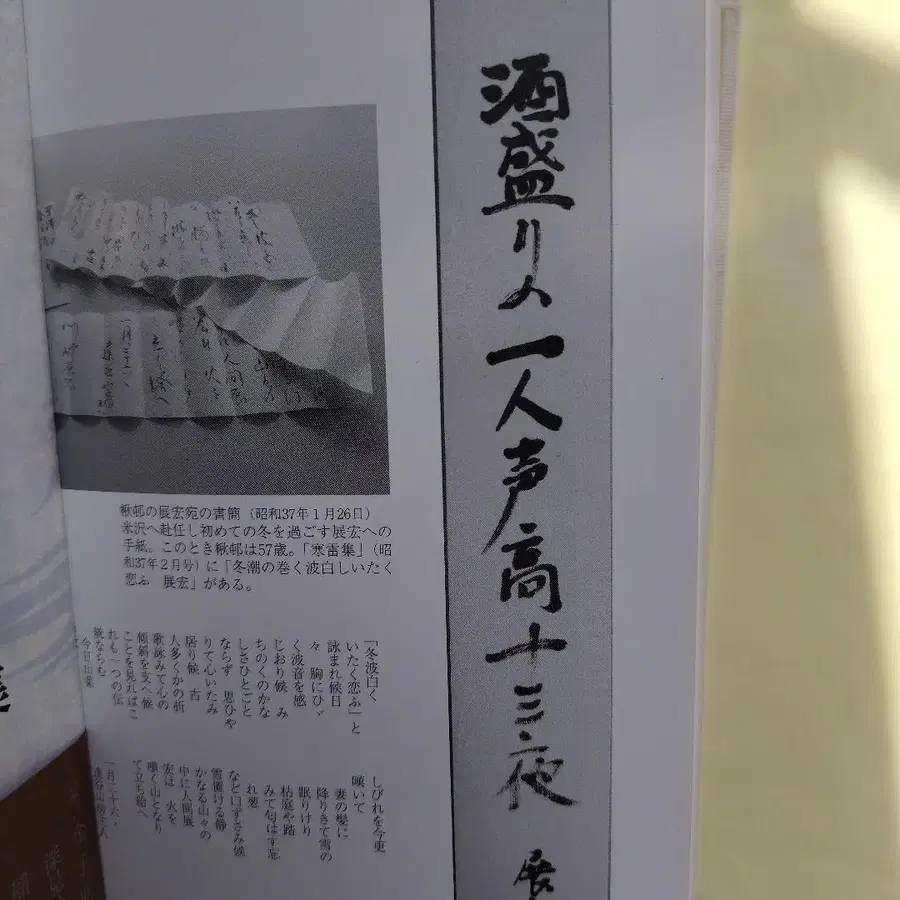 酒盛りの一人声高十三夜 展
楸邨の展宏宛の書簡(昭和37年1月26日)
米沢へ赴任し初めての冬を過ごす展宏への
手紙。このとき楸邨は57歳。「寒雷集」(昭
和37年2月号)に「冬潮の巻く波白しいたく
恋ふ 展宏」がある。
「冬波白く
いたく恋ふ」と
詠まれ候日
々 胸にひゞ
く波音を感
じおり候 み
ちのくのかな
しさひとごと
ならず 思ひや
りて心いたみ
居り候 古
人多くかの析
歌詠みて心の
傾斜を支へ候
ことを見ればこ
れも一つの伝
統ならむ
しびれを今更
嘆いて
妻の髪に
降りきて雪の
眠りけり
枯庭や踏
みて匂はす忘
れ葱
など口ずさみ候
雪置ける静
かなる山々の
中に人間展
宏は 火を
噴く山となり
て立ち給へ
一月二十六